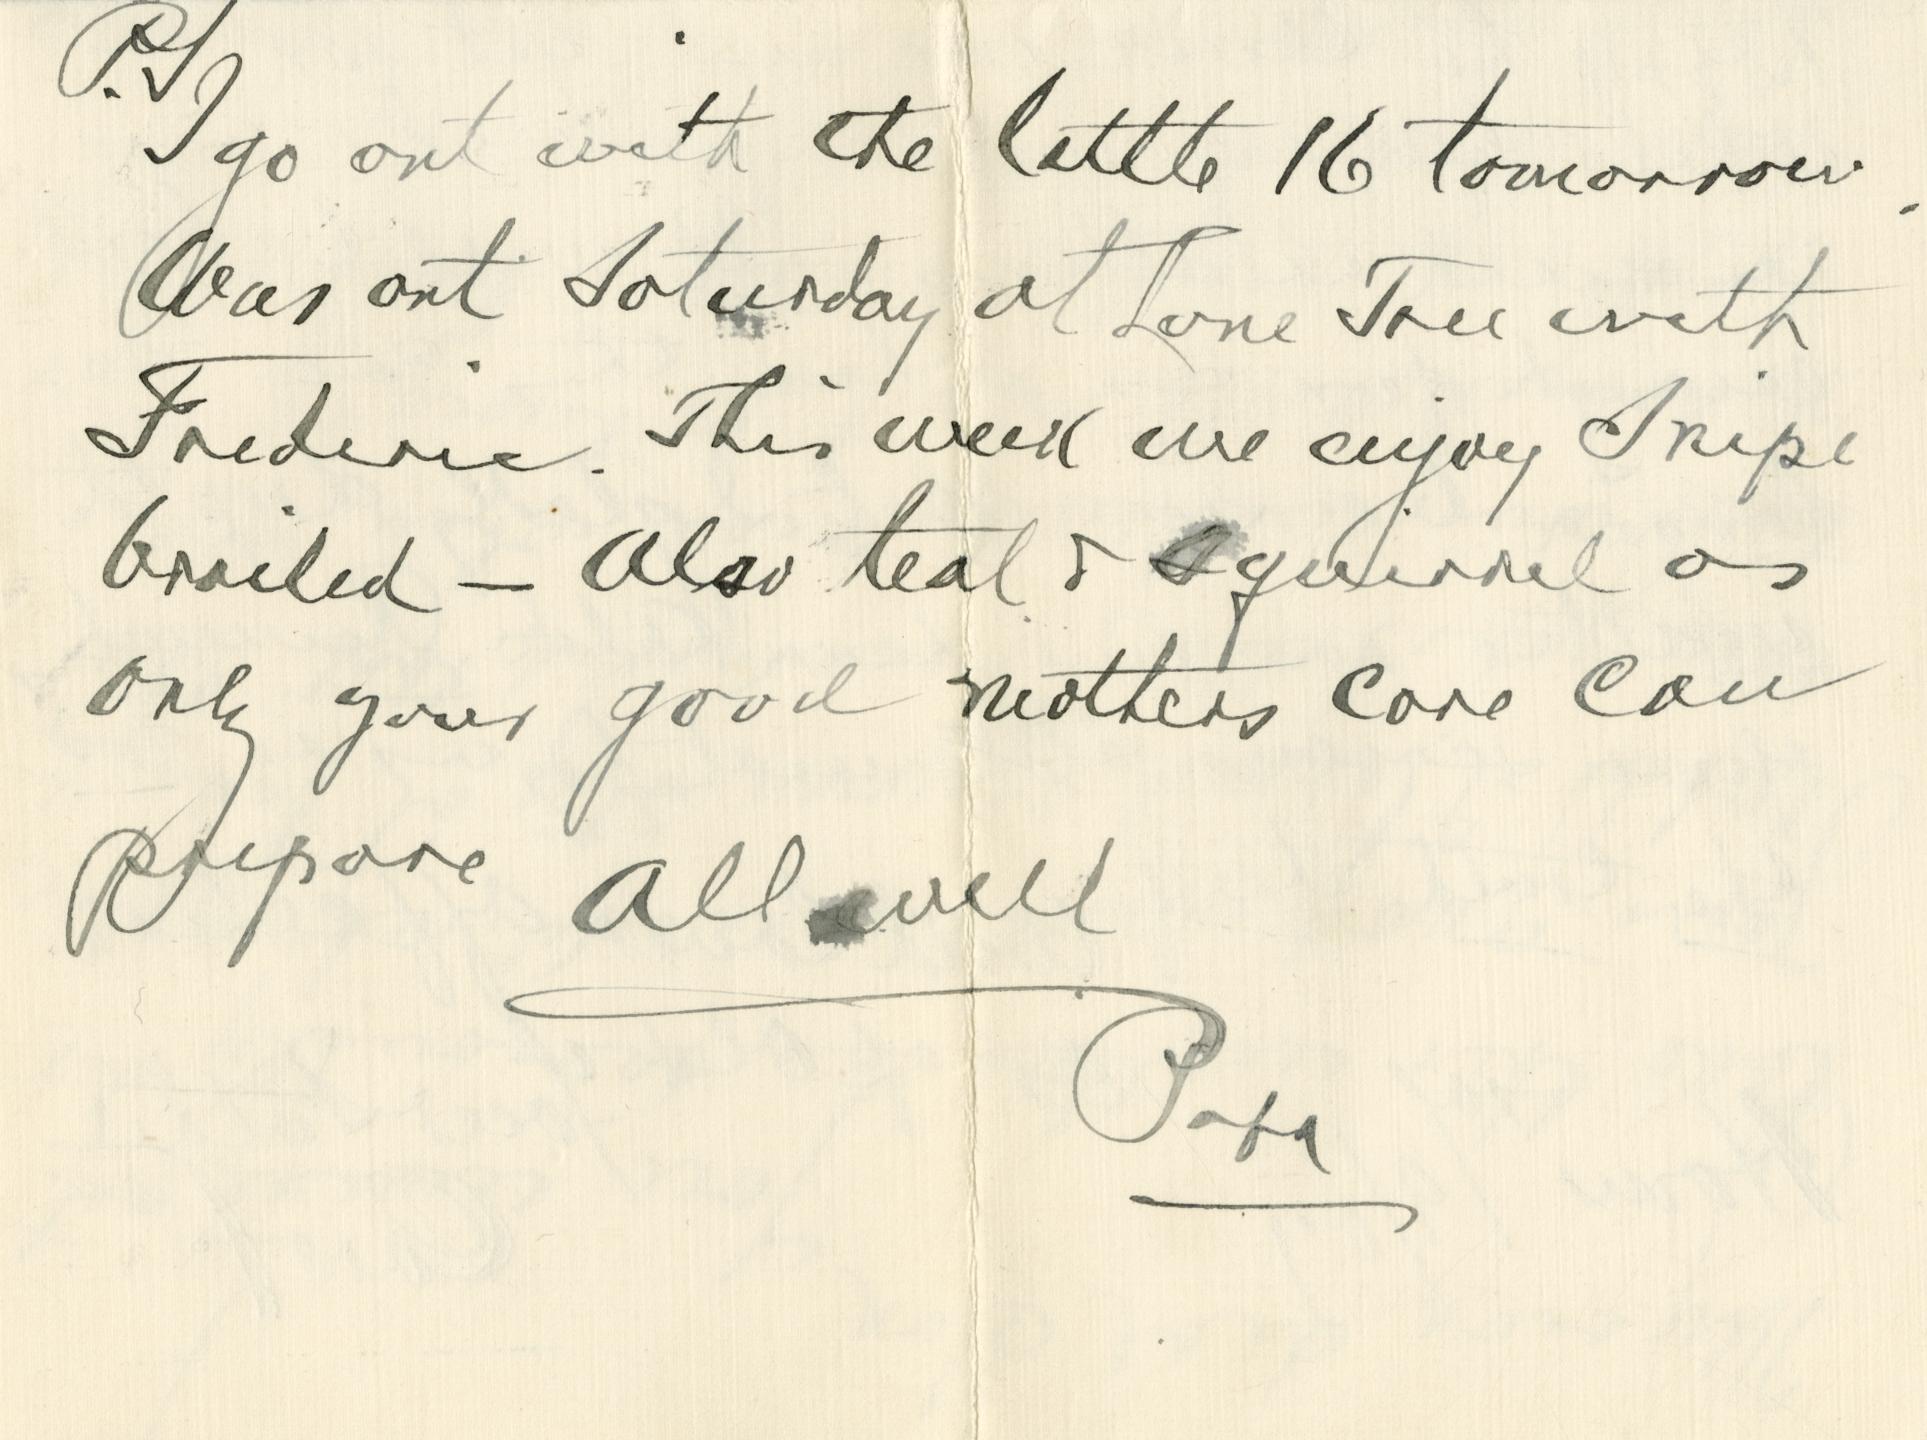 P.S.
I go out with the little 16 tomorrow.
Was out Saturday at Lone Tree with
Frederic. This week we enjoy Snipe
broiled — Also teal & squirrel as
only your good mothers care can
prepare All well
Papa